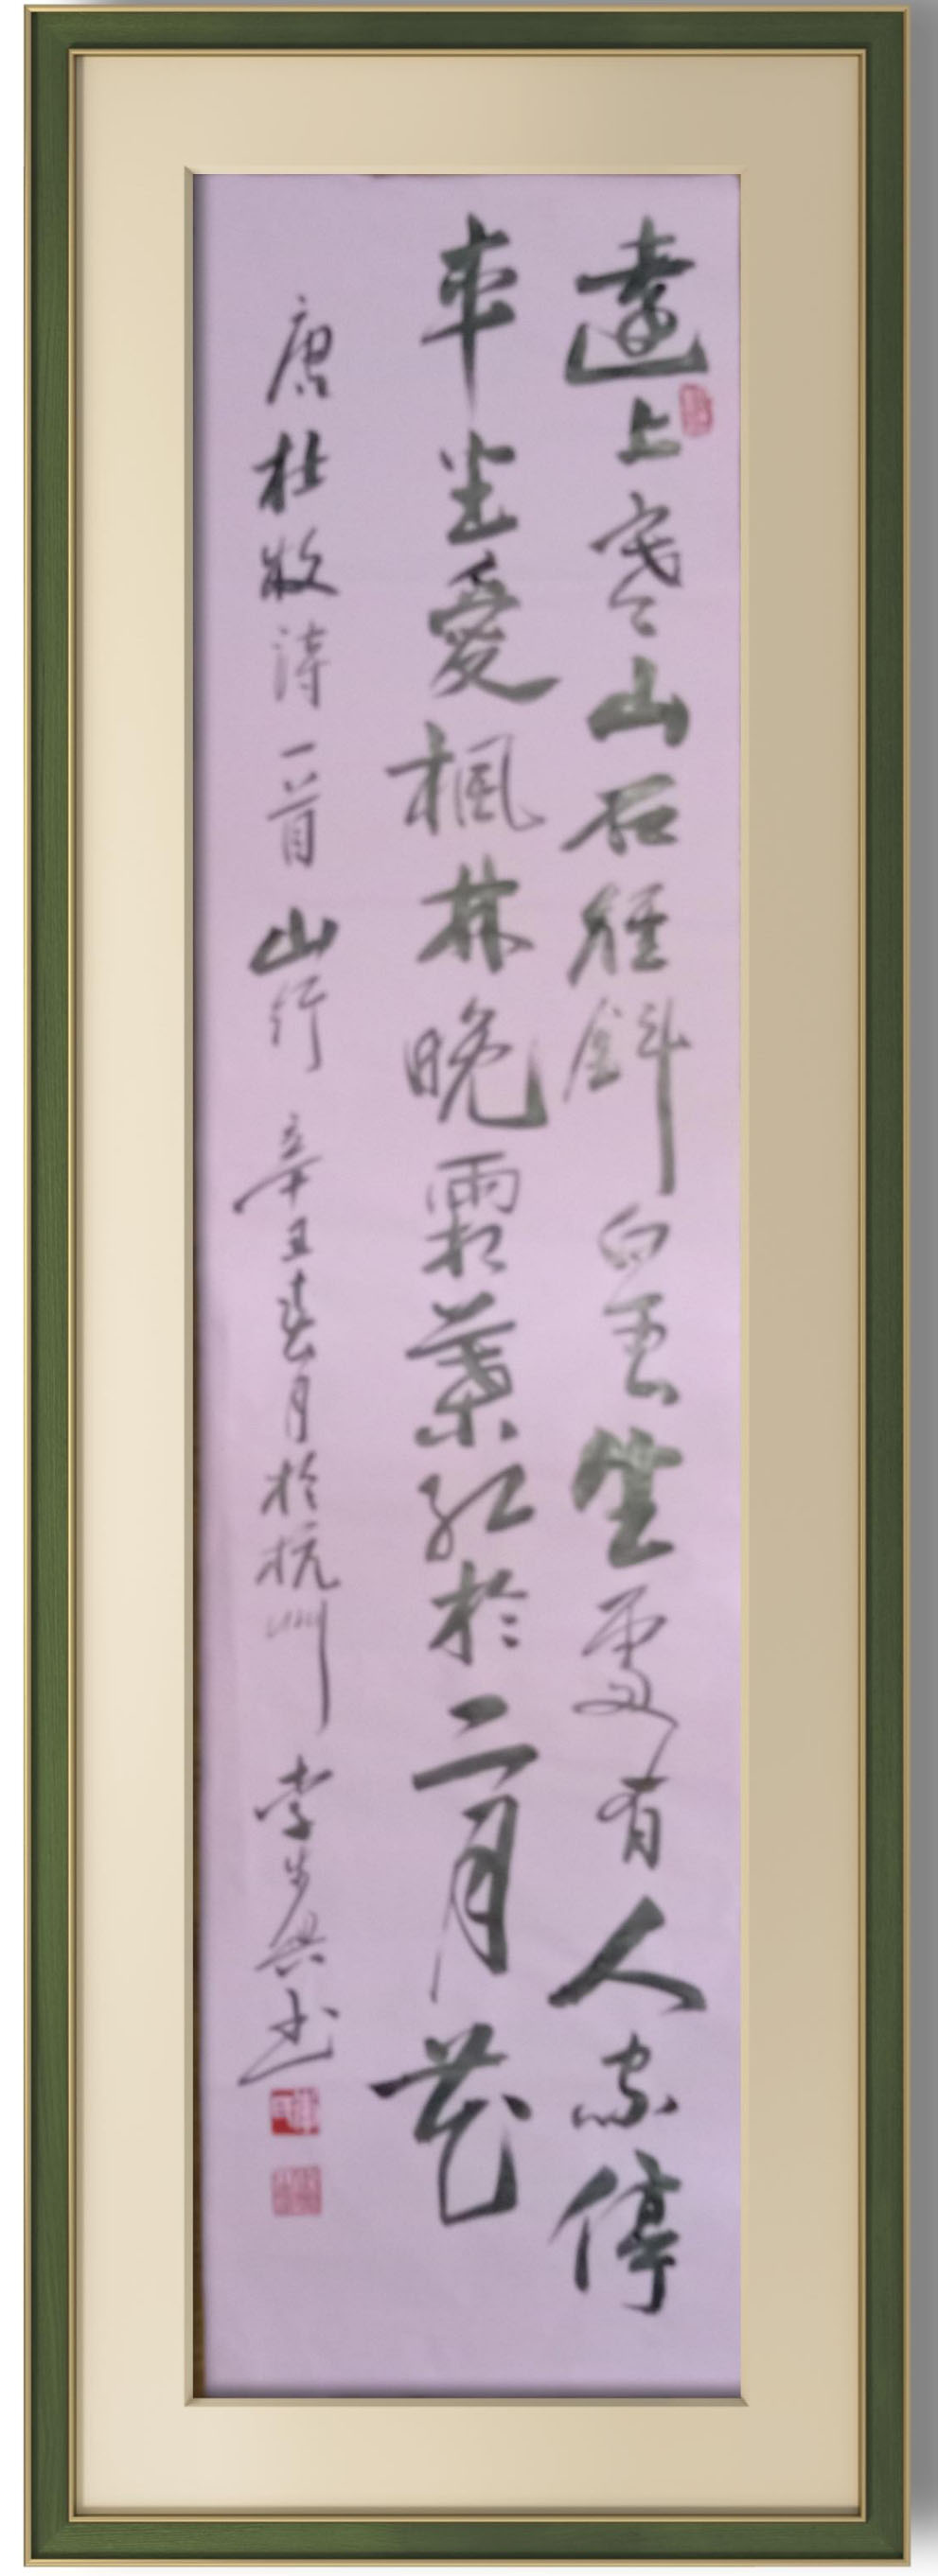 遠上寒山石徑斜白雲坐處有人家停
車坐愛楓林晚霜葉紅於二月花
唐杜牧詩一首山行辛丑春月於杭州李步興书